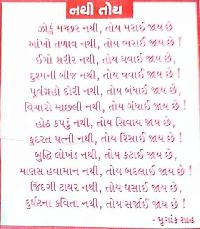 નથી તોય
ઝોકું મચ્છર નથી, તોય મરાઈ જાય છે !
આંખો તળાવ નથી, તોય ભરાઈ જાય છે !
ઈગો શરીર નથી, તોય ઘવાઈ જાય છે !
દુશ્મની બીજ નથી, તોય વવાઈ જાય છે !
પૂર્વગ્રહો દોરી નથી, તોય બંધાઈ જાય છે !
વિચારો માછલી નથી, તોય ગંધાઈ જાય છે !
હોઠ કપડું નથી, તોય સિવાય જાય છે,
કુદરત પત્ની નથી, તોય રિસાઈ જાય છે !
બુદ્ધિ લોખંડ નથી, તોય કટાઈ જાય છે,
માણસ હવામાન નથી, તોય બદલાઈ જાય છે !
જિંદગી ટાયર નથી, તોય ઘસાઈ જાય છે,
દુર્ઘટના કવિતા નથી, તોય સર્જાઈ જાય છે !
- મૃગાંક શાહ